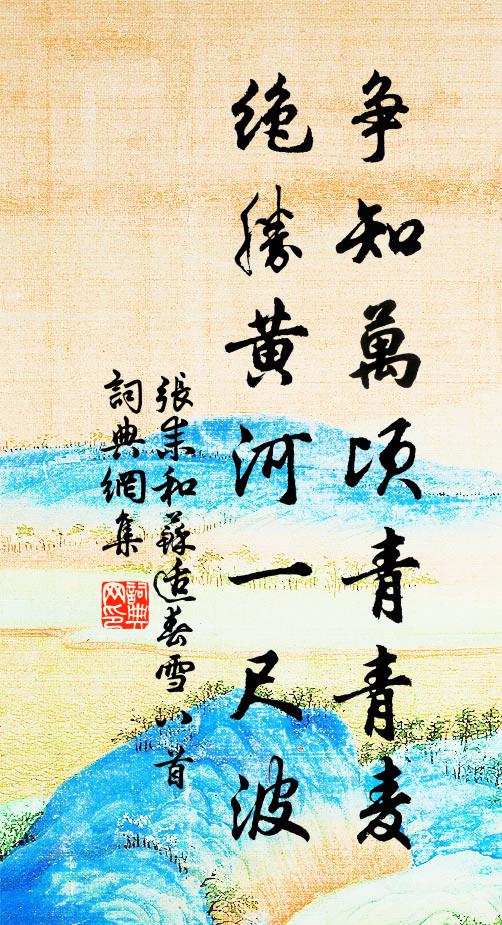 争知萬頃青青麦
绝勝黄河一尺波
張耒和蘇适春雪八首
詞典網集
詞典
网印